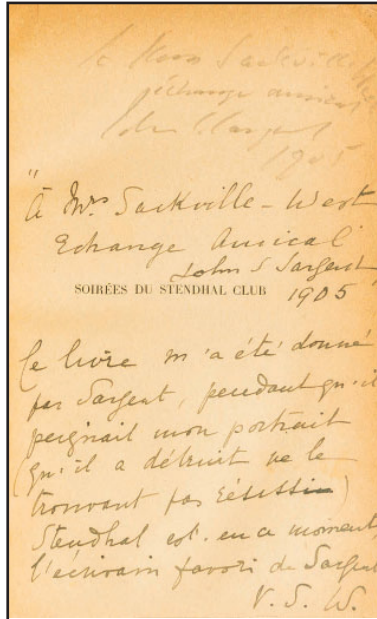 Mrs Sackville-West
échange amical
John S Sargent
1905
"
À Mrs Sackville-West
Echange Amical"
John S Sargent
SOIRÉES DU STENDHAL CLUB 1905
Ce livre m'a été donné
par Sargent, pendant qu'il
peignait mon portrait
(qu'il a détruit ne le
trouvant pas réussi)
Stendhal est en ce moment,
l'écrivain favori de Sargent
V. S. W.